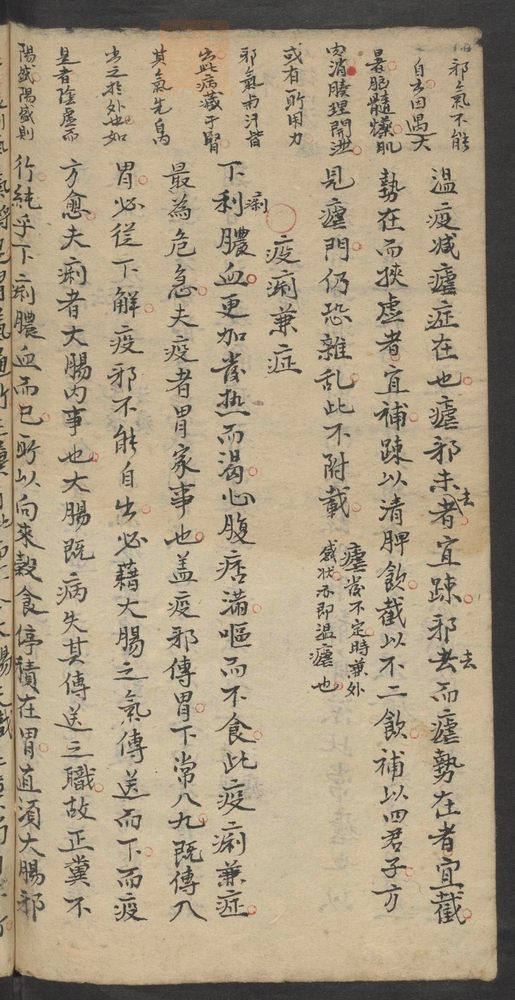 温疫减瘧症在也瘧邪未去者宜踈邪去而瘧勢在者宜截
勢在而挾虛者宜補踈以清脾飲截以不二飲補以四君子方
見瘧門仍恐雜乱此不附載
瘧發不定時兼外
感状亦即温瘧也
疫痢兼症
下痢膿血更加發热而渴心腹痞滿嘔而不食此疫痢兼症
最為危急夫疫者胃家事也盖疫邪傳胃下常八九既傳入
胃必従下解疫邪不能自出必藉大腸之氣傳送而下而疫
方愈夫痢者大腸内事也大腸既病失其傳送之職故正糞不
行純乎下痢膿血而已所以向来穀食停積在胃直須大腸邪
邪氣不能
自去因遇大
暑腦髓爍肌
肉消腠理開泄
或有所用力
邪氣與汗皆
出此病藏于腎
其氣先自内
出之扵外也如
是者陰虛而
陽盛陽盛則